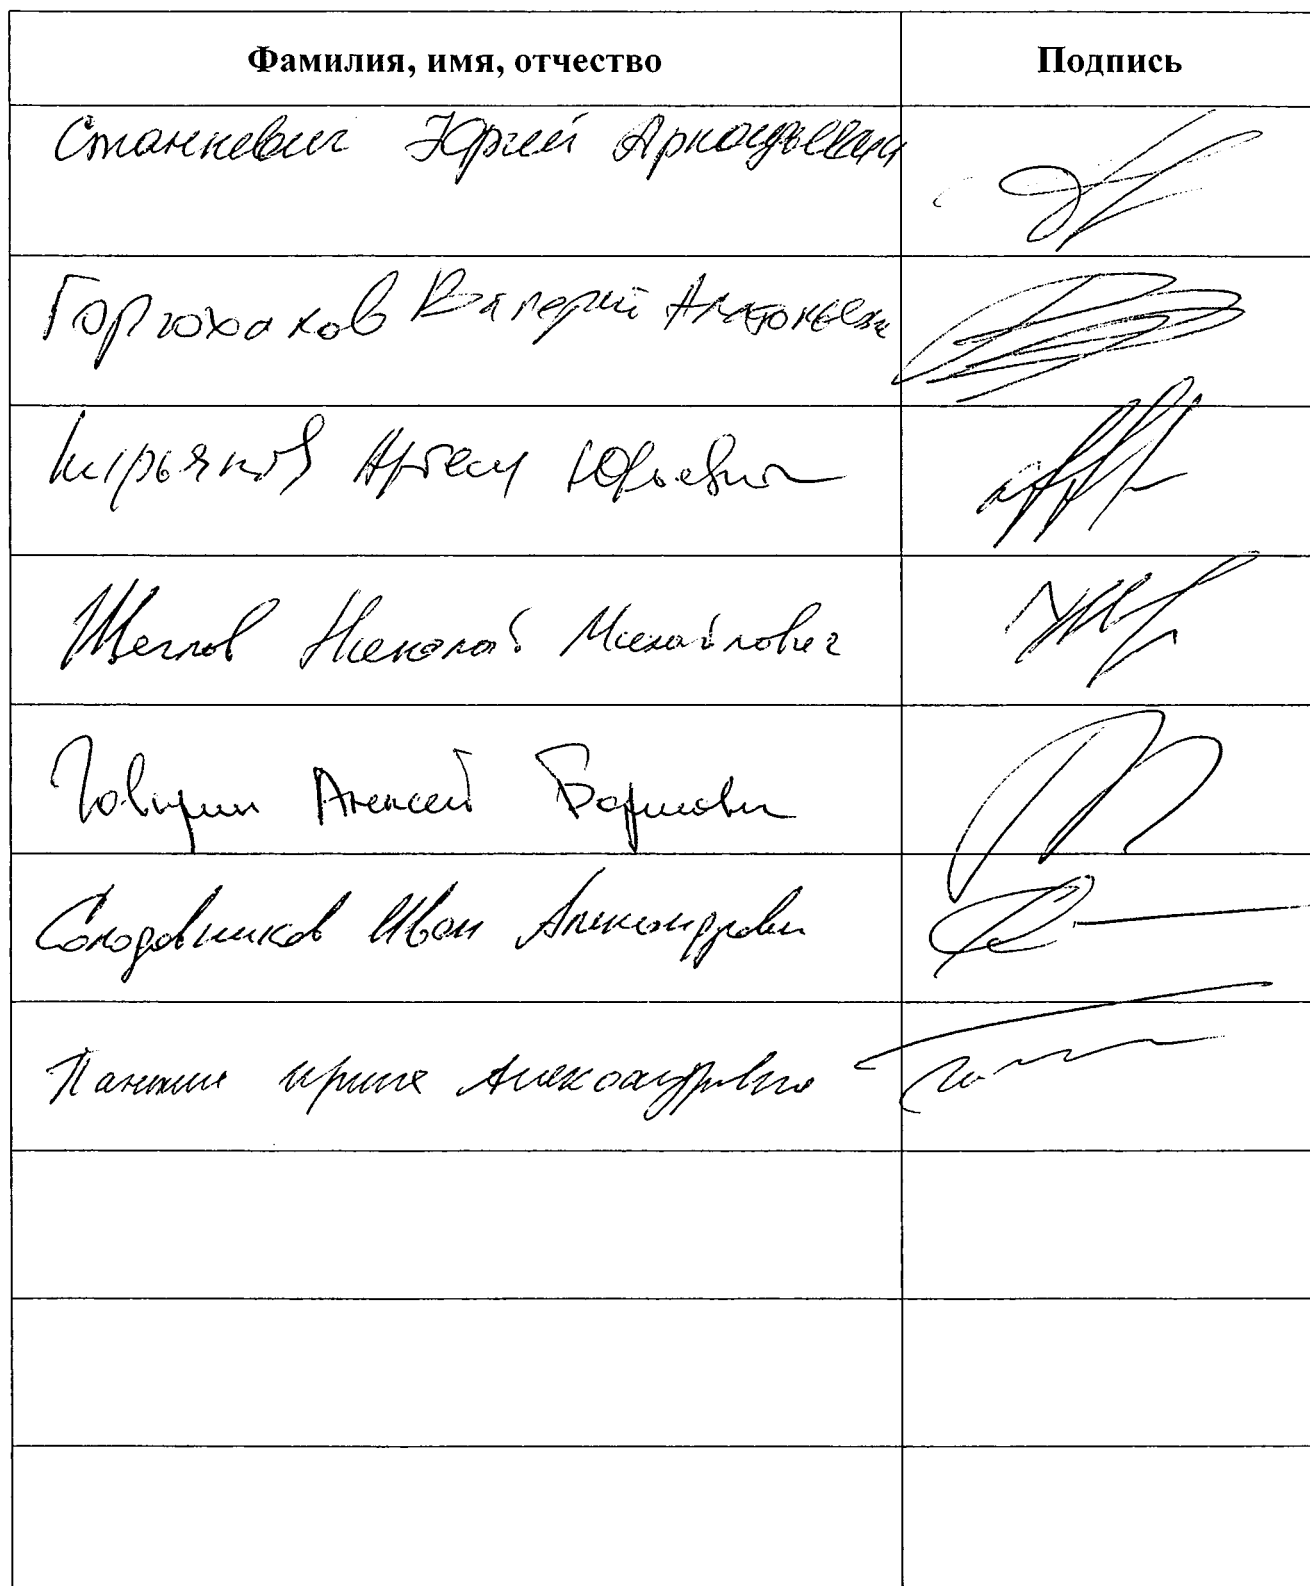 Фамилия, имя, отчество Подпись
Станкевич Юрий Аркадьевич
Горюхалов Валерий Анатольевич
Кирьянов Артем Юрьевич
Щеглов Николай Михайлович
Говырин Алексей Борисович
Солодовников Иван Александрович
Панькина Ирина Александровна